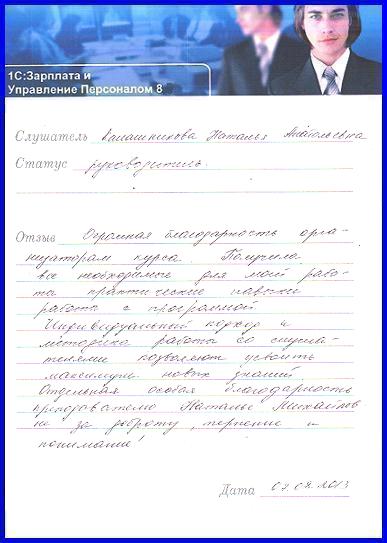 1С:Зарплата и
Управление Персоналом 8
Слушатель Калашникова Наталья Анатольевна
Статус руководитель.
Отзыв Огромная благодарность орга-
низаторам курса. Получила
все необходимые для моей рабо-
та практические навыки
работы с программой
Индивидуальный подход и
методика работы со слуша-
телями позволяют усвоить
максимум новых знаний
Отдельная особая благодарность
преподавателю Наталье Михайлов
не за доброту, терпение и
понимание!
Дата 2013